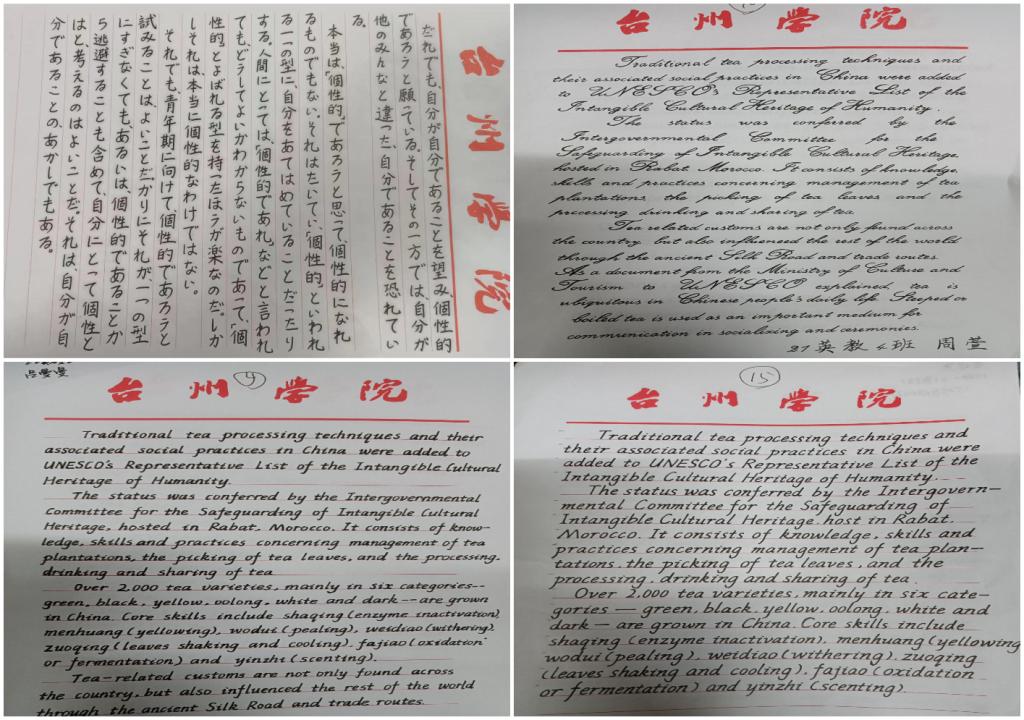 台州学院
だれでも、自分が自分であることを望み、個性的
であろうと願っている。そしてその一方では、自分が
他のみんなと違った、自分であることを恐れてい
る。
本当は、「個性的」であろうと思って、個性的になれ
るものでもない。それはたいてい、「個性的」といわれ
る一つの型に、自分をあてはめていることだったり
する。人間にとっては、「個性的であれ」などと言われ
ても、どうしてよいかわからないものであって、「個
性的」とよばれる型を持ったほうが楽なのだ。しか
しそれは、本当に個性的なわけではない。
それでも、青年期に向けて、個性的であろうと
試みることは、よいことだ。かりにそれが、一つの型
にすぎなくても、あるいは、個性的であることか
ら逃避することも含めて、自分にとって個性と
はと、考えるのはよいことだ。それは、自分が自
分であることの、あかしでもある。
台州学院
Traditional tea processing techniques and
their associated social practices in China were added
to UNESCO's Representative List of the
Intangible Cultural Heritage of Humanity.
The status was conferred by the
Intergovernmental Committee for the
Safeguarding of Intangible Cultural Heritage,
hosted in Rabat, Morocco. It consists of knowledge,
skills and practices concerning management of tea
plantations, the picking of tea leaves and the
processing drinking and sharing of tea
Tea related customs are not only found across
the country, but also influenced the rest of the world
through the ancient Silk Road and trade routes.
As a document from the Ministry of Culture and
Tourism to UNESCO explained, tea is
ubiquitous in Chinese people's daily life. Steeped or
boiled tea is used as an important medium for
communication in socializing and ceremonies.
21英教4班 周萱
9
台州学院
Traditional tea processing techniques and their
associated social practices in China were added to
UNESCO's Representative List of the Intangible Cultural
Heritage of Humanity.
The status was conferred by the Intergovernmental
Committee for the Safeguarding of Intangible Cultural
Heritage, hosted in Rabat, Morocco. It consists of know-
ledge, skills and practices concerning management of tea
plantations, the picking of tea leaves, and the processing,
drinking and sharing of tea
Over 2,000 tea varieties, mainly in six categories--
green, black, yellow, oolong, white and dark--are grown
in China. Core skills include shaqing (enzyme inactivation),
menhuang (yellowing), wodui (pealing), weidiao (withering),
zuoqing (leaves shaking and cooling), fajiao (oxidation
or fermentation) and yinzhi (scenting).
Tea-related customs are not only found across
the country, but also influenced the rest of the world
through the ancient Silk Road and trade routes.
15
台州学院
Traditional tea processing techniques and
their associated social practices in China were
added to UNESCO's Representative List of the
Intangible Cultural Heritage of Humanity.
The status was conferred by the Intergovern-
mental Committee for the Safeguarding of
Intangible Cultural Heritage, host in Rabat,
Morocco. It consists of knowledge, skills and
practices concerning management of tea plan-
tations, the picking of tea leaves, and the
processing, drinking and sharing of tea.
Over 2,000 tea varieties, mainly in six cate-
gories — green, black, yellow, oolong, white and
dark — are grown in China. Core skills include
shaqing (enzyme inactivation), menhuang (yellowing
wodui (pealing), weidiao (withering), zuoqing
(leaves shaking and cooling), fajiao (oxidation
or fermentation) and yinzhi (scenting).